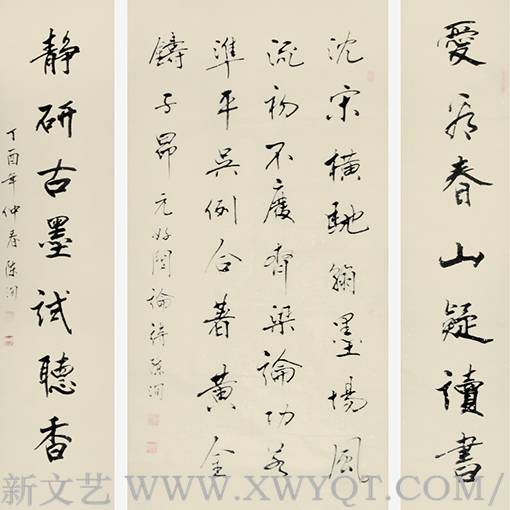 愛看春山疑讀書
沈宋橫馳翰墨場風
流初不廢齊梁論功若
準平吳例合著黃金
鑄子昂 元好問論詩 陳
静研古墨試聽香
丁酉年仲春 陳
新文艺 WWW.XWYQT.COM/